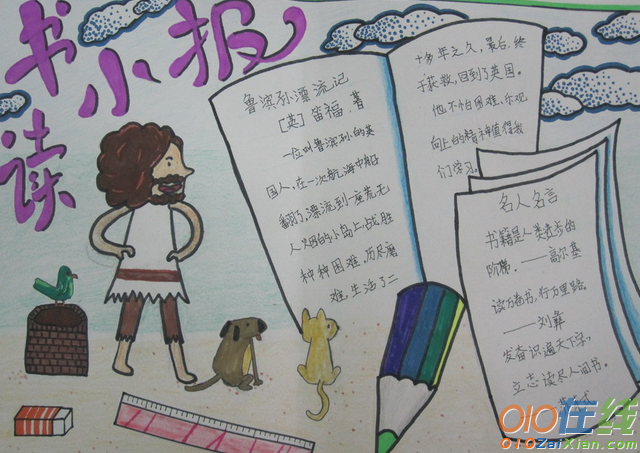 读书小报
鲁滨孙漂流记
[英] 笛福·著
一位叫鲁滨孙的英
国人,在一次航海中船
翻了,漂流到一座荒无
人烟的小岛上,战胜
种种困难,历尽磨
难,生活了二
十多年之久,最后,终
于获救,回到了英国。
他不怕困难,乐观
向上的精神值得我
们学习。
名人名言
书籍是人类进步的
阶梯。——高尔基
读万卷书,行万里路。
——刘彝
发奋识遍天下字,
立志读尽人间书。
010在线
010ZaiXian.com